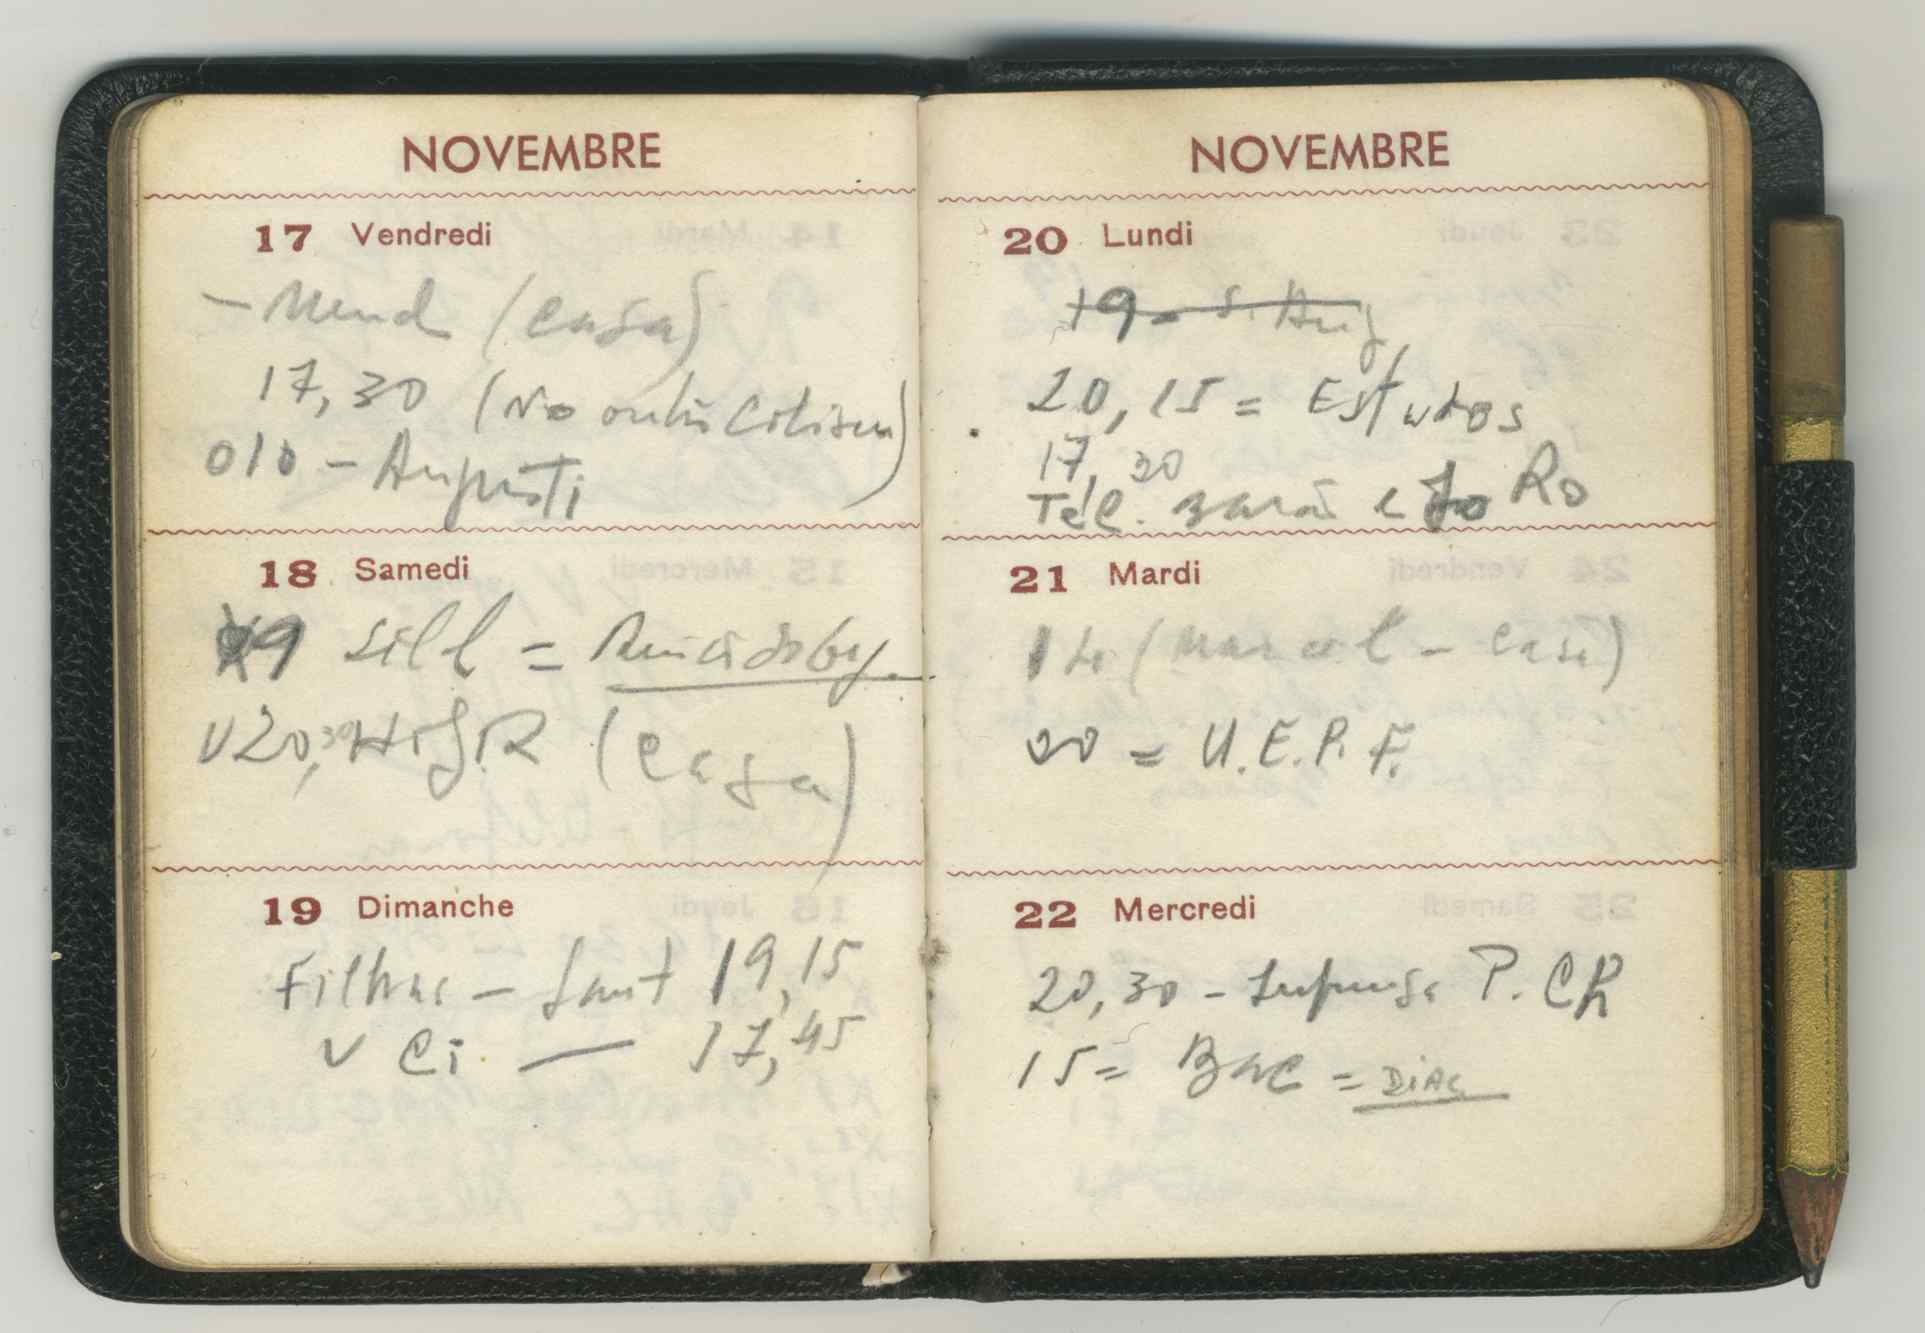 NOVEMBRE
17 Vendredi
- Mend (Casa)
17,30 (No
010 - Augusti
18 Samedi
9 Lill =
V 20,30 (Casa)
19 Dimanche
Filhas - 19,15
V Ci — 17,45
NOVEMBRE
20 Lundi
19 - S. Aug
20,15 = Estudos
17,30
Tél. e Jo Ro
21 Mardi
14 (Marcel - Casa)
20 = U.E.P.F.
22 Mercredi
20,30 - P. CR
15 = Bac = DIAC